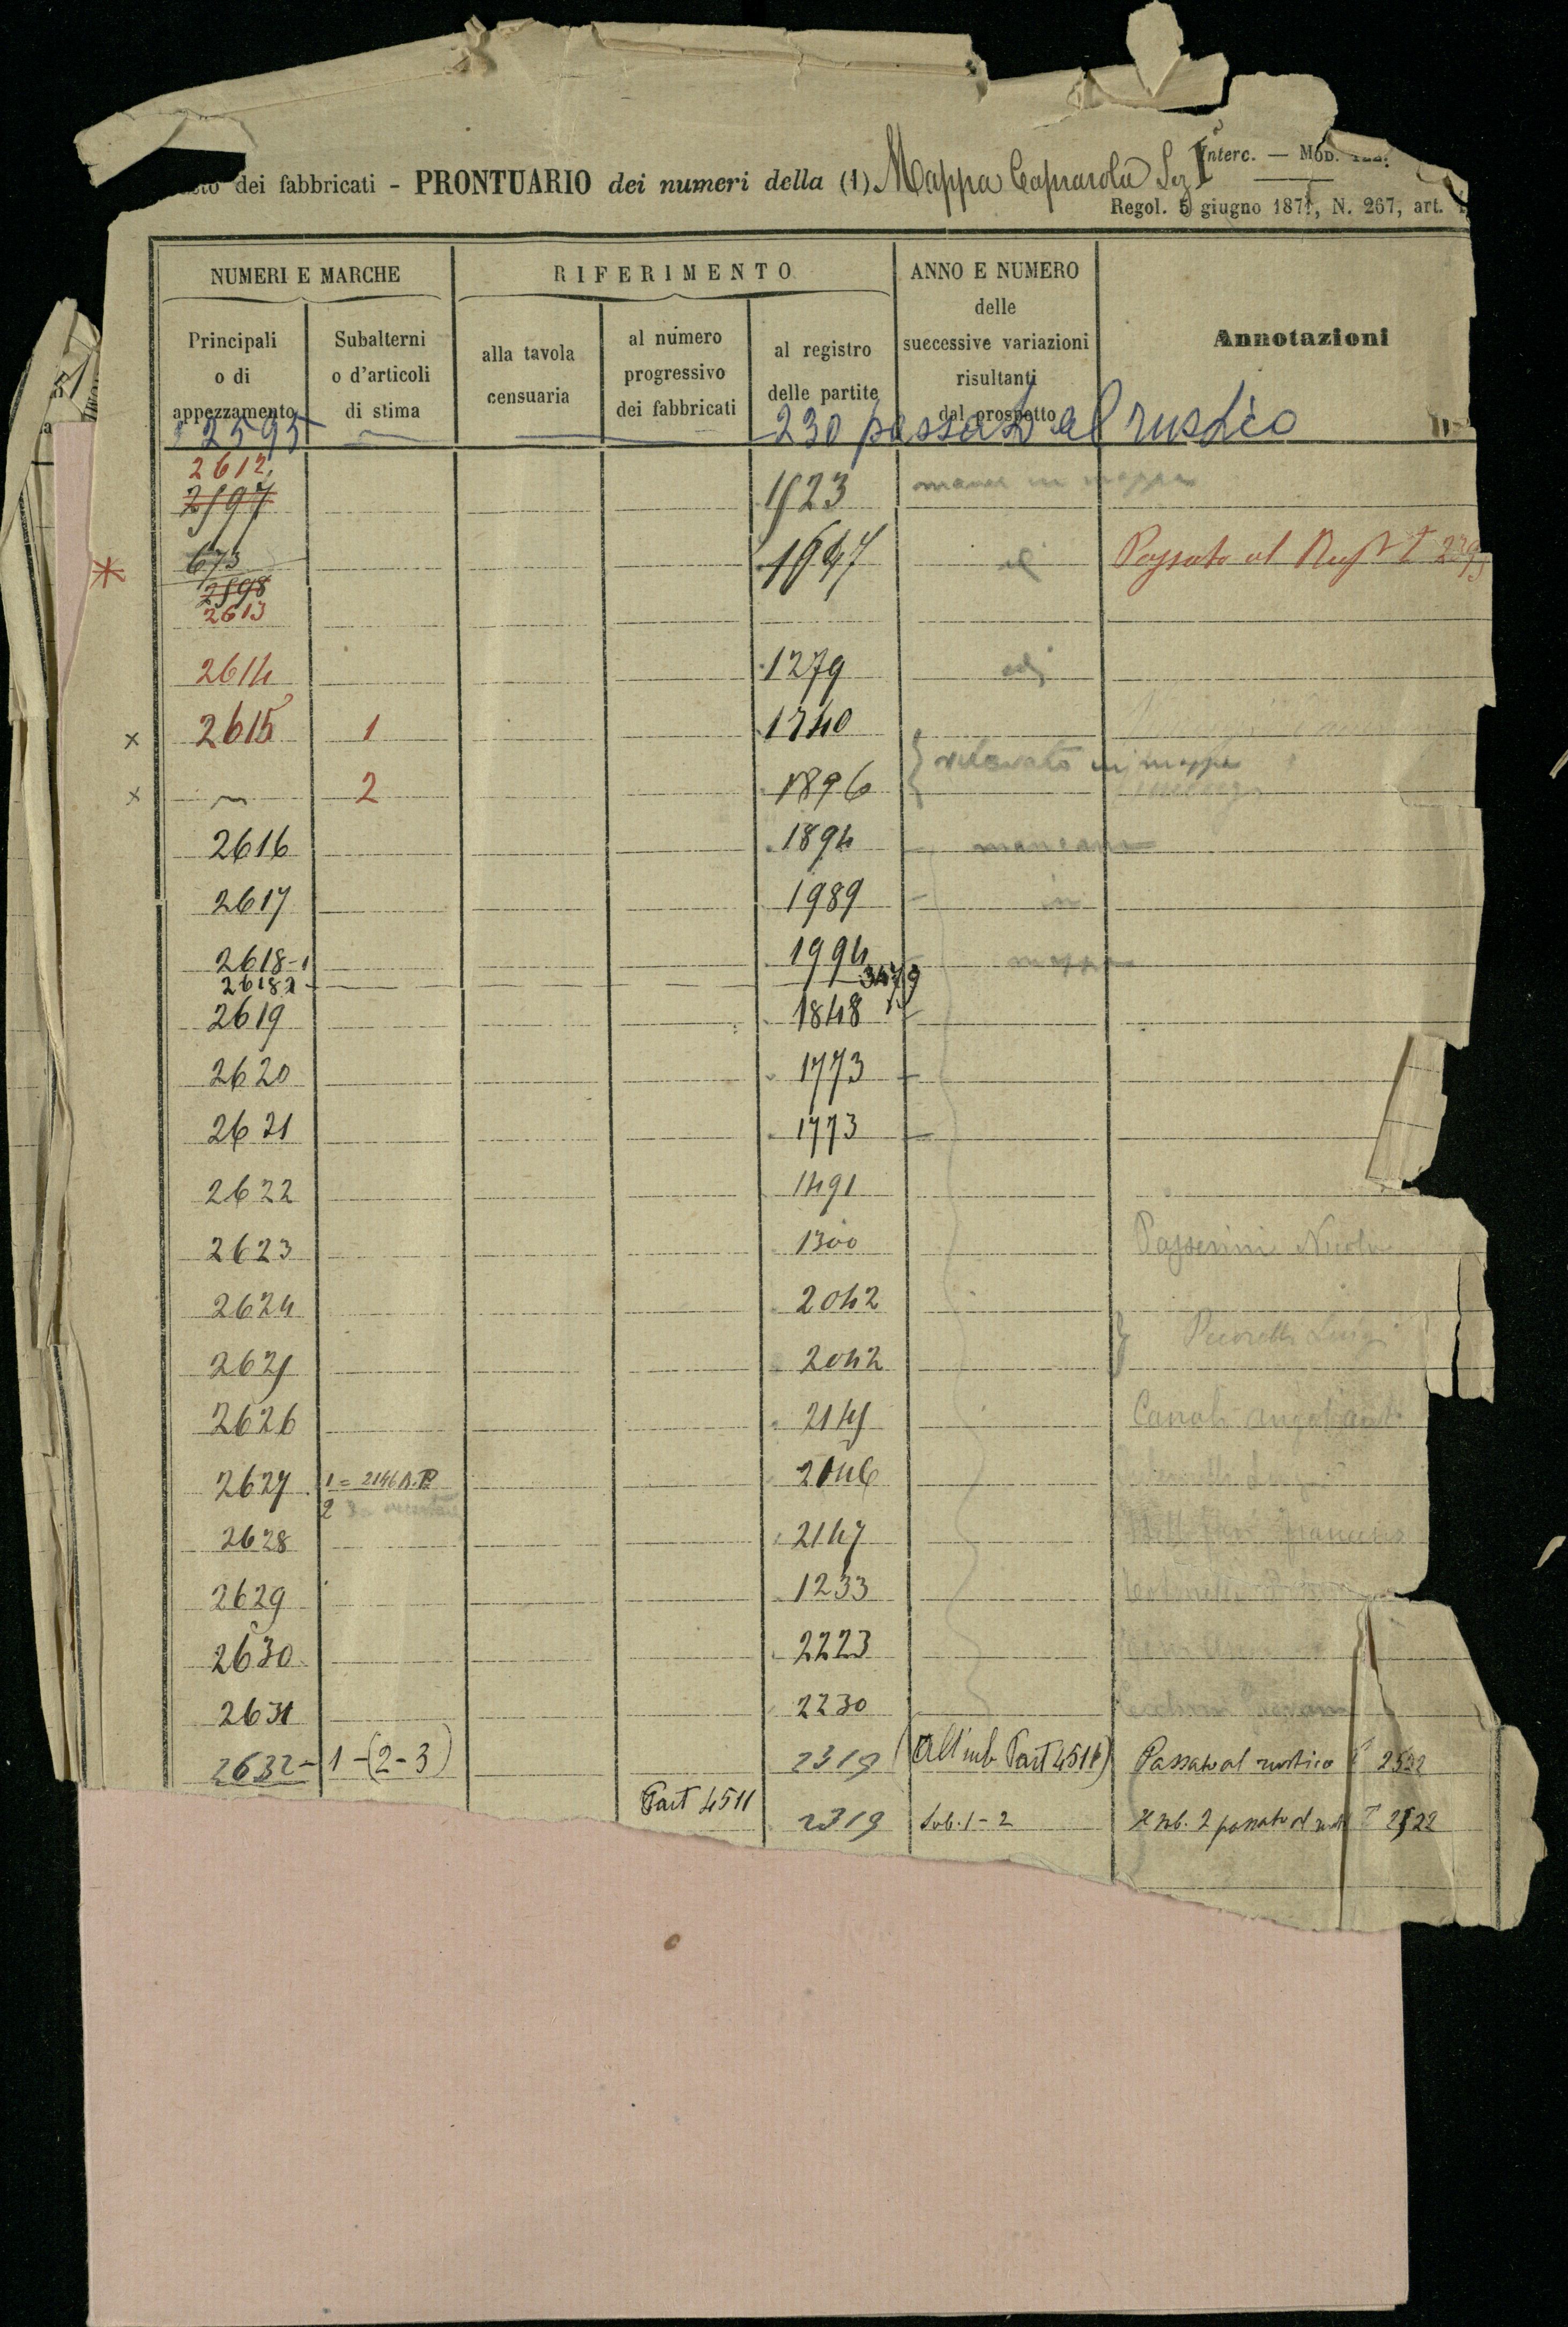 dei fabbricati - PRONTUARIO dei numeri della (1) Mappa Caprarola Sez I Interc. — MOD.
Regol. 5 giugno 1871, N. 267, art.
NUMERI E MARCHE
RIFERIMENTO
ANNO E NUMERO
delle
successive variazioni
risultanti
dal prospetto
Annotazioni
Principali
o di
appezzamento
Subalterni
o d'articoli
di stima
alla tavola
censuaria
al numero
progressivo
dei fabbricati
al registro
delle partite
2595 — 230 passato al rustico
2612
2597 1523 manca in mappa
673 1647 id Passato al Rust
2598
2613
2614 1279 id
x 2615 1 1740
x 2 1896 rilevato in mappa
2616 1894 mancano
2617 1989 in
2618-1 1994 mappa
2618 2 3479
2619 1848
2620 1773
2621 1773
2622 1491
2623 1300 Passerini Nicola
2624 2042
2625 2042 Luigi
2626 2145
2627 1 = 2146 R.P. 2046
2
2628 2147
2629 1233
2630 2223
2631 2230
2632 - 1-(2-3) 2319 Part 4511) Passato al rustico
Part 4511 2319 Sub. 1-2 Il sub. 2 passato al rust T 2522